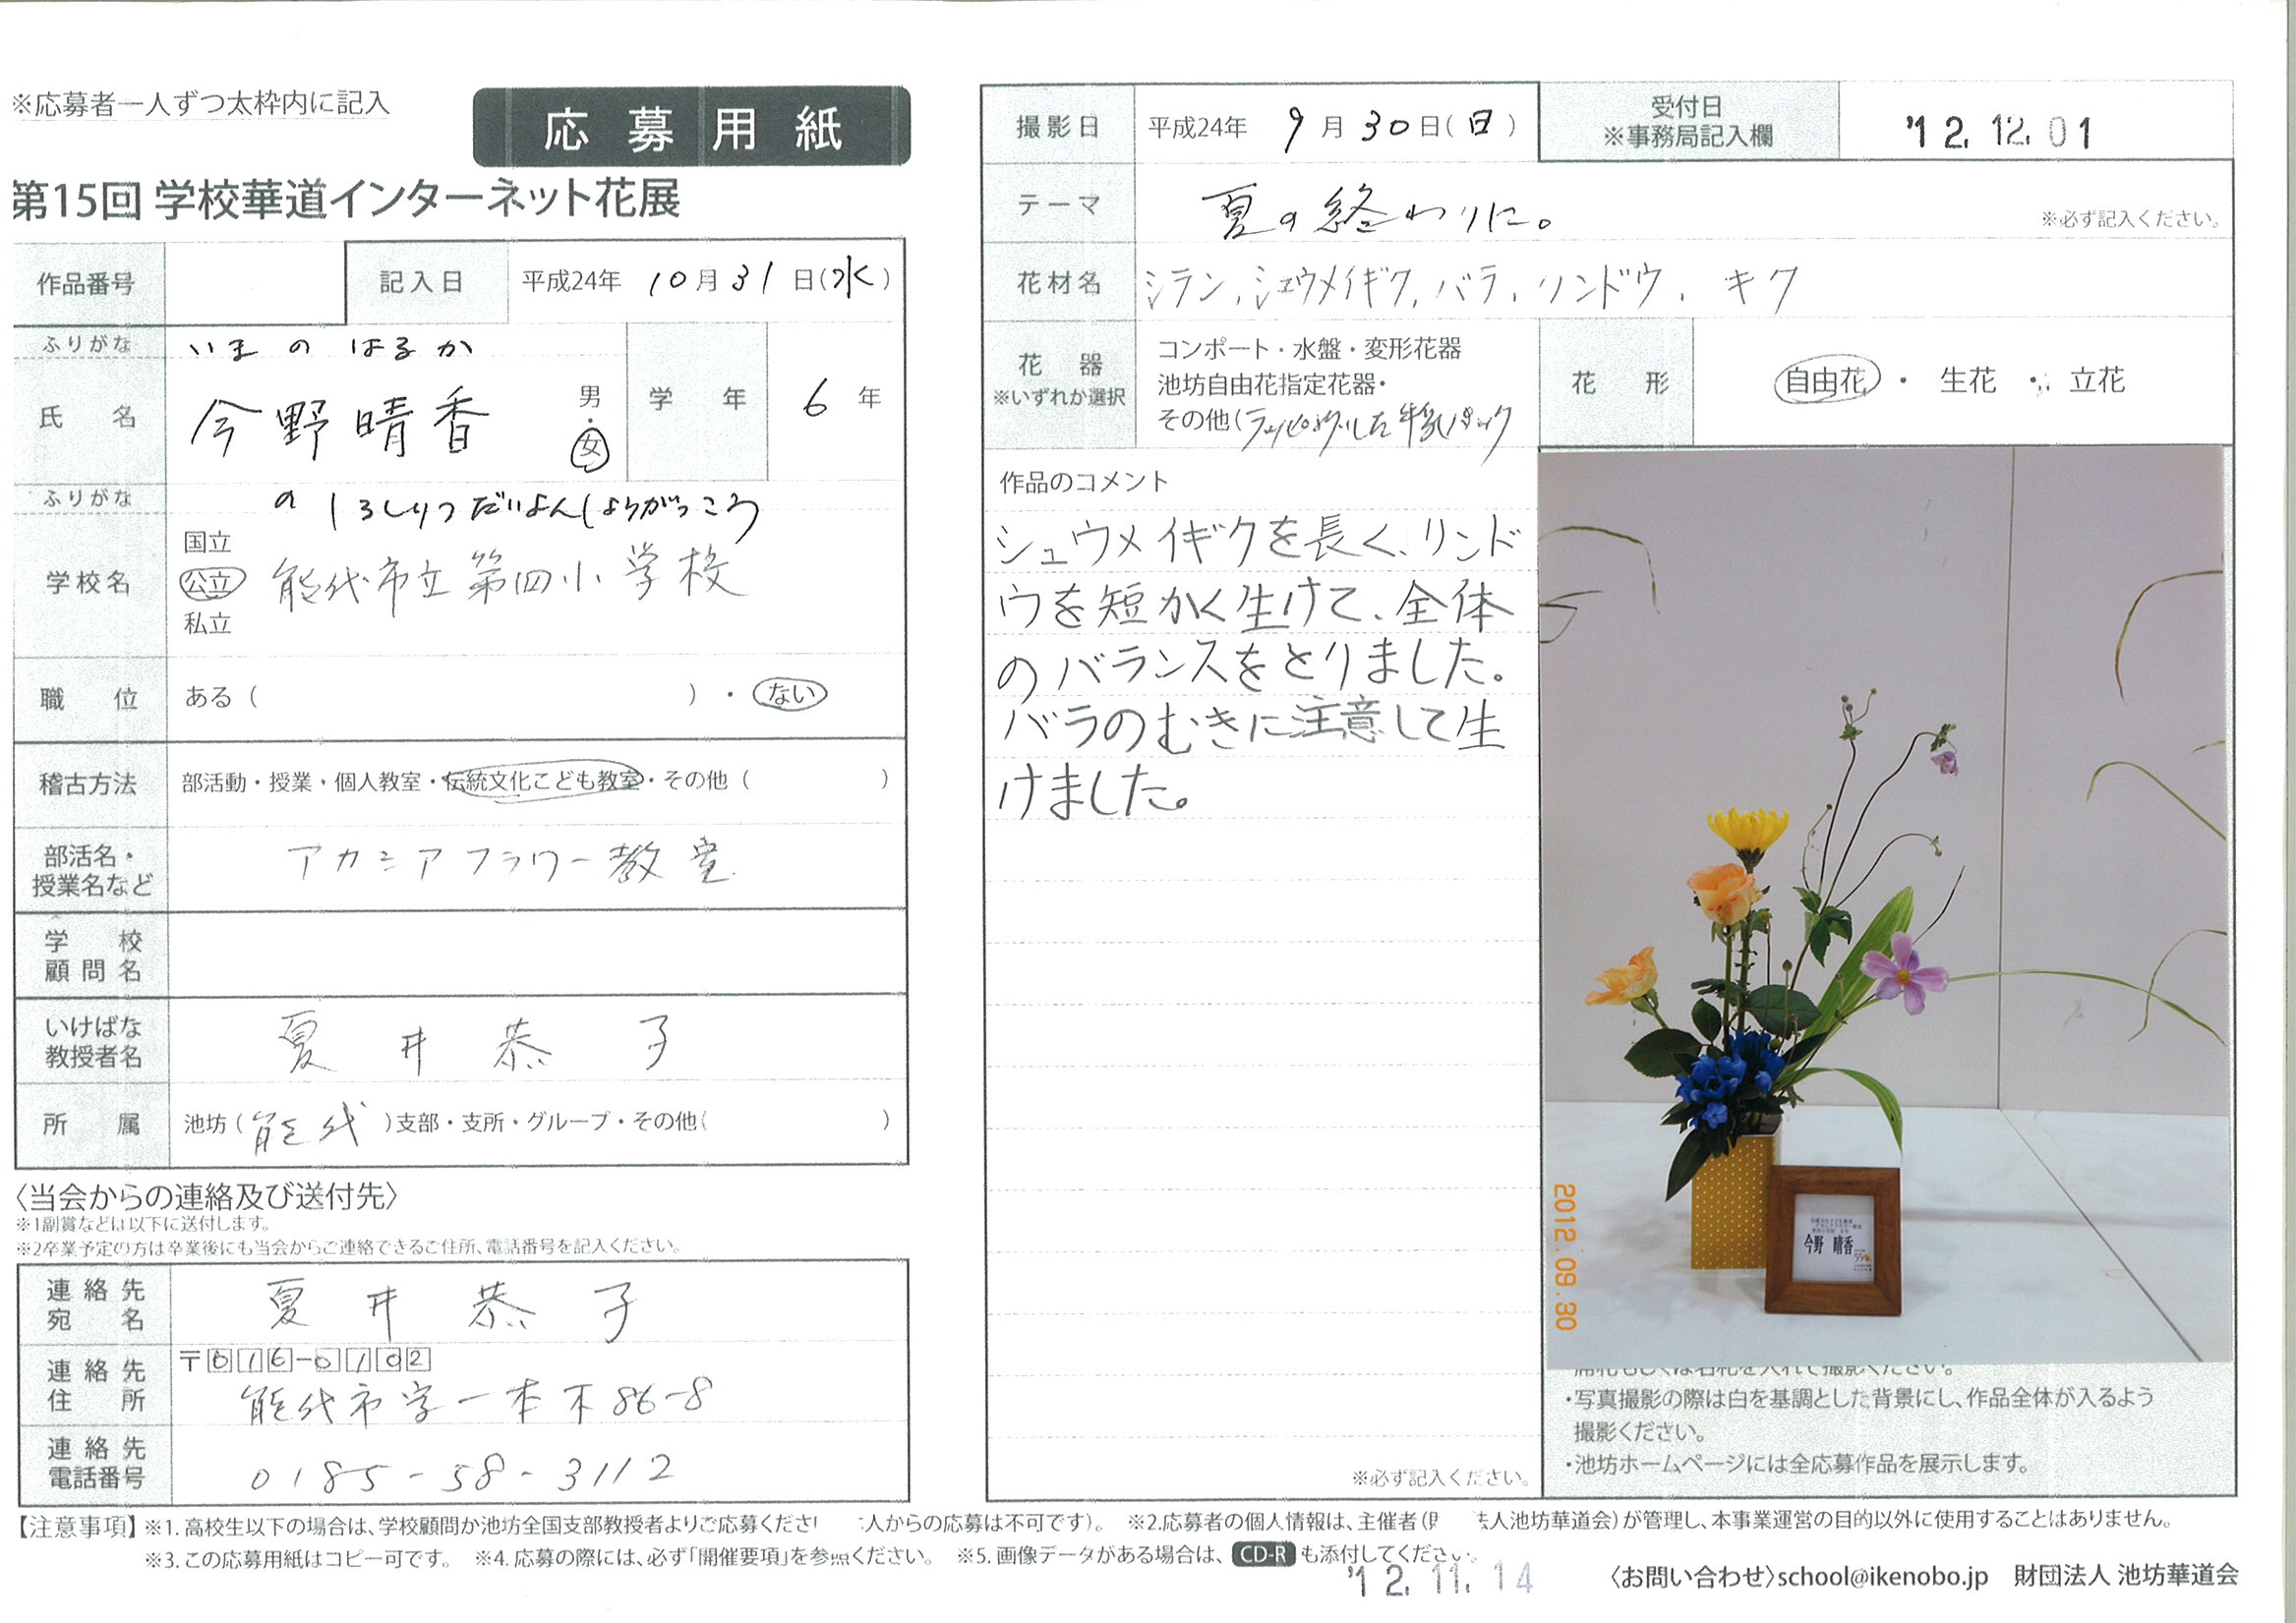 ※応募者一人ずつ太枠内に記入
応募用紙
第15回 学校華道インターネット花展
作品番号
記入日 平成24年 10月31日(水)
ふりがな いまの はるか
氏名 今野晴香 男・女
学年 6年
ふりがな のしろしりつだいよんしょうがっこう
学校名 国立 公立 私立 能代市立第四小学校
職位 ある( )・ない
稽古方法 部活動・授業・個人教室・伝統文化こども教室・その他( )
部活名・授業名など アカシアフラワー教室
学校顧問名
いけばな教授者名 夏井恭子
所属 池坊(能代)支部・支所・グループ・その他( )
〈当会からの連絡及び送付先〉
※1副賞などは以下に送付します。
※2卒業予定の方は卒業後にも当会からご連絡できるご住所、電話番号を記入ください。
連絡先宛名 夏井恭子
連絡先住所 〒016-0102
能代市字一本木86-8
連絡先電話番号 0185-58-3112
撮影日 平成24年 9月30日(日)
受付日 ※事務局記入欄 '12.12.01
テーマ 夏の終わりに。 ※必ず記入ください。
花材名 シラン,シュウメイギク,バラ,リンドウ,キク
花器 ※いずれか選択
コンポート・水盤・変形花器
池坊自由花指定花器・
その他(ラッピングした牛乳パック
花形 自由花・生花・立花
作品のコメント
シュウメイギクを長く、リンド
ウを短かく生けて、全体
のバランスをとりました。
バラのむきに注意して生
けました。
※必ず記入ください。
今野 晴香
2012.09.30
席札もしくは名札を入れて撮影ください。
・写真撮影の際は白を基調とした背景にし、作品全体が入るよう
撮影ください。
・池坊ホームページには全応募作品を展示します。
【注意事項】※1.高校生以下の場合は、学校顧問か池坊全国支部教授者よりご応募くださ 人からの応募は不可です)。 ※2.応募者の個人情報は、主催者(財 法人池坊華道会)が管理し、本事業運営の目的以外に使用することはありません。
※3.この応募用紙はコピー可です。 ※4.応募の際には、必ず「開催要項」を参照ください。 ※5.画像データがある場合は、CD-Rも添付してください。
'12.11.14
〈お問い合わせ〉school@ikenobo.jp 財団法人 池坊華道会